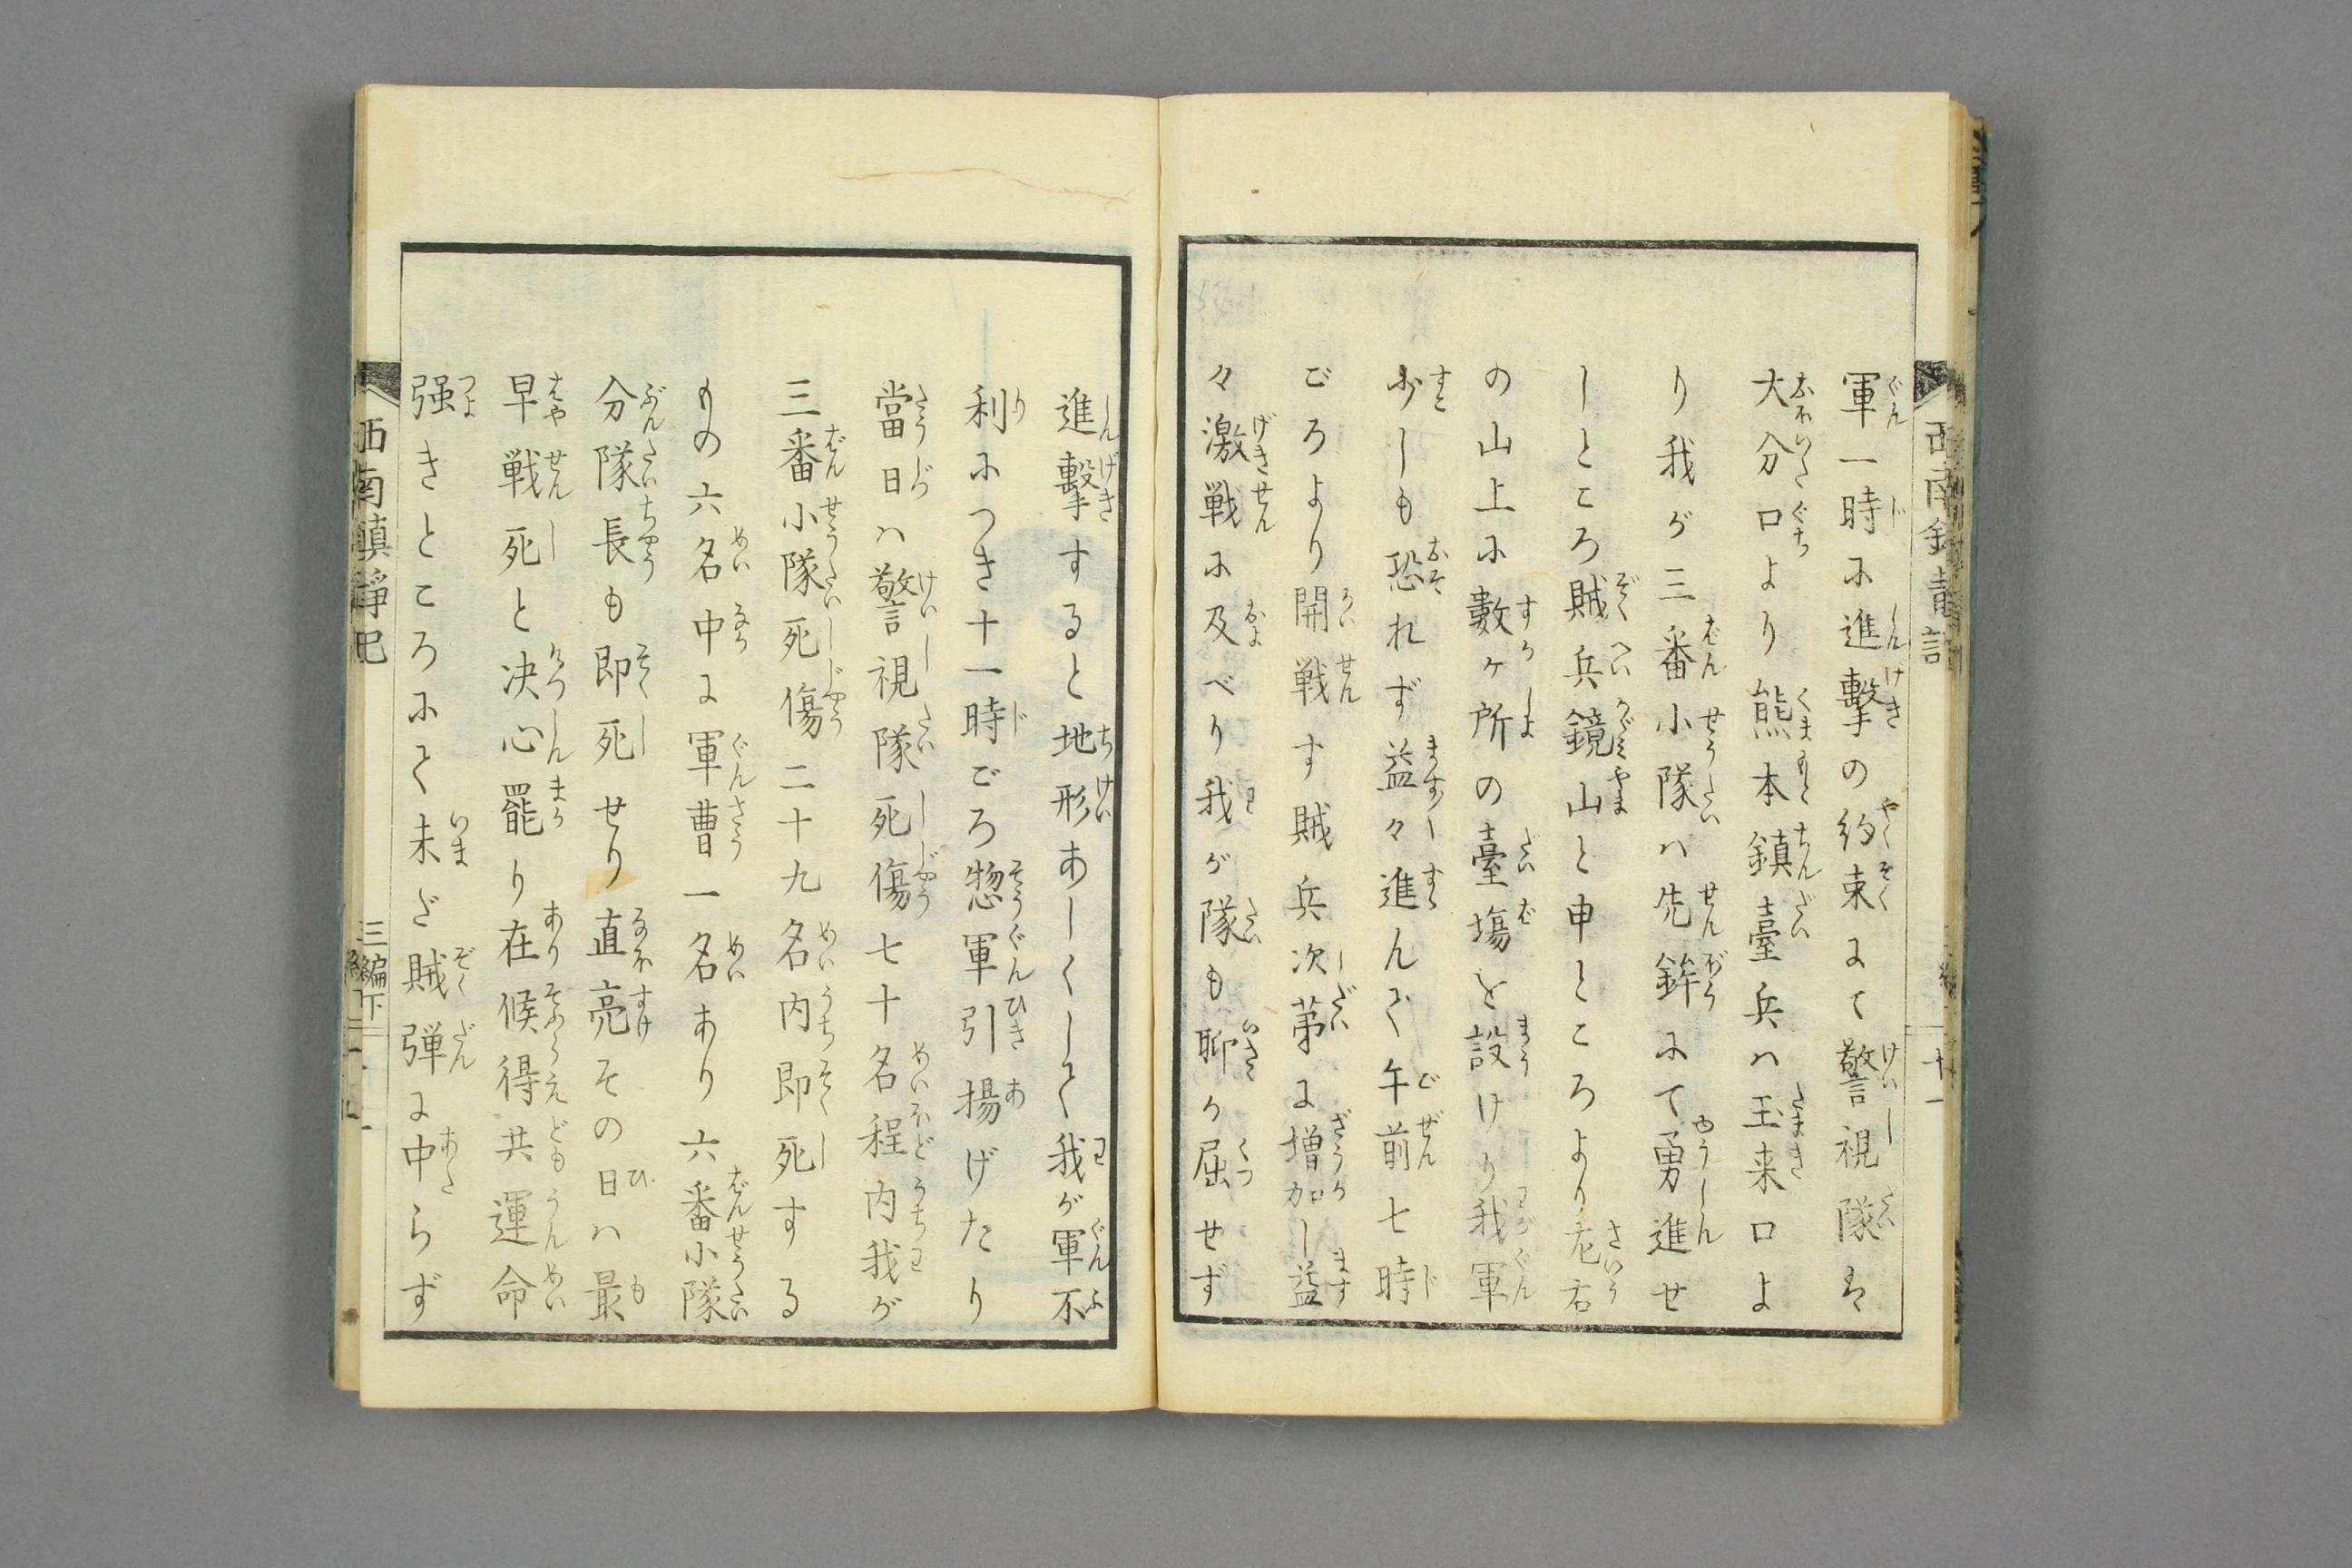 軍一時に進撃の約束にて警視隊は
大分口より熊本鎮臺兵ハ玉来口よ
り我が三番小隊ハ先鉾にて勇進せ
しところ賊兵鏡山と申ところより左右
の山上に數ヶ所の臺塲を設けり我軍
少しも恐れず益々進んで午前七時
ごろより開戦す賊兵次第に増加し益
々激戦に及べり我が隊も聊か屈せず
進撃すると地形あしくして我が軍不
利につき十一時ごろ惣軍引揚げたり
當日ハ警視隊死傷七十名程内我が
三番小隊死傷二十九名内即死する
もの六名中に軍曹一名あり六番小隊
分隊長も即死せり直亮その日ハ最
早戦死と决心罷り在候得共運命
强きところにて未だ賊弾に中らず
西南鎮静記
三編下